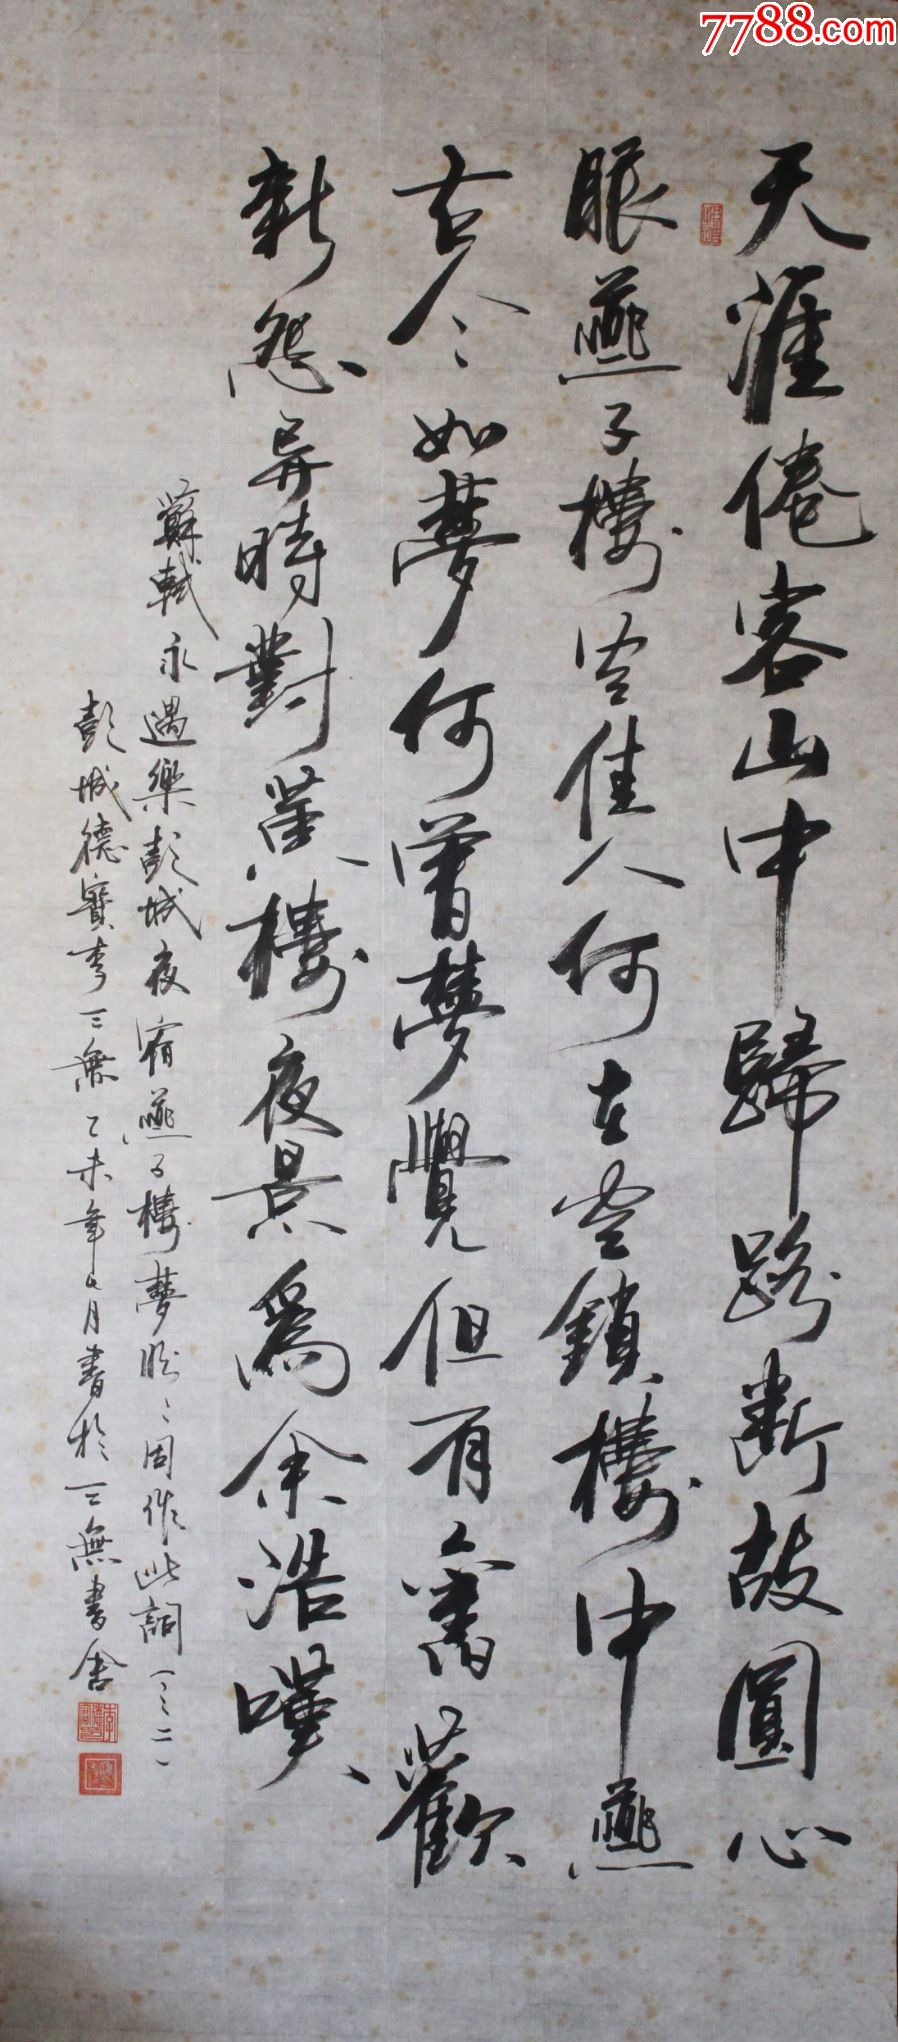 7788.com
天涯倦客山中歸路斷故圓心
眼燕子樓空佳人何在空鎖樓中燕
古今如夢何曾夢覺但有舊歡
新怨异時對黄樓夜景爲余浩嘆
蘇軾永遇樂彭城夜宿燕子樓夢盼〻因作此詞（之二）
彭城德寶李三無乙未年七月書於三無書舍